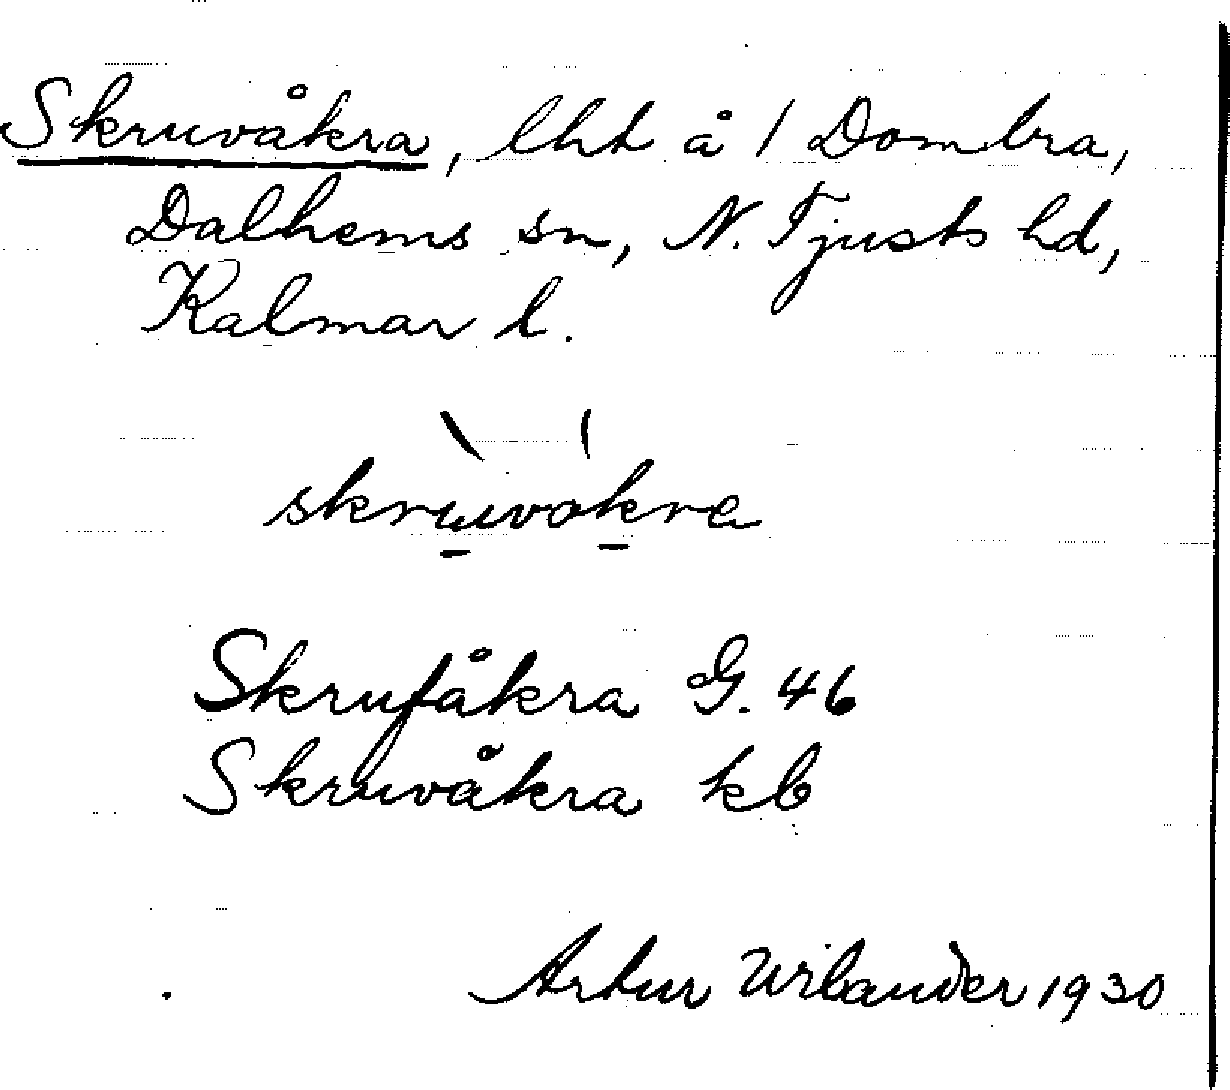 Skruvåkra, lht å 1 Dombra,
Dalhems sn, N. Tjusts hd,
Kalmar l.
skruvokra
Skrufåkra G. 46
Skruvåkra kb
Artur Wilander 1930